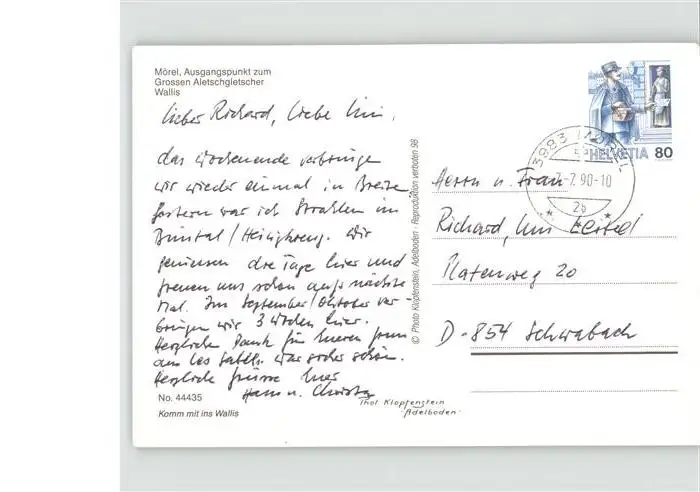 Mörel, Ausgangspunkt zum
Grossen Aletschgletscher
Wallis
Lieber Richard, liebe
das Wochenende verbringe
wir wieder einmal in
gestern war ich Strahlen im
Binntal / Heiligkreuz. Wir
geniessen die Tage hier und
freuen uns schon aufs nächste
Mal. Im September/Oktober ver-
bringen wir 3 Wochen hier.
Herzlichen Dank für
war sicher schön.
Herzliche Grüsse
Hans u. Christa
No. 44435
Komm mit ins Wallis
Phot Klopfenstein
"Adelboden"
© Photo Klopfenstein, Adelboden - Reproduktion verboten 98
HELVETIA 80
3983 MÖREL
-7.90-10
2b
Herrn u. Frau
Richard,
Platenweg 20
D-854 Schwabach